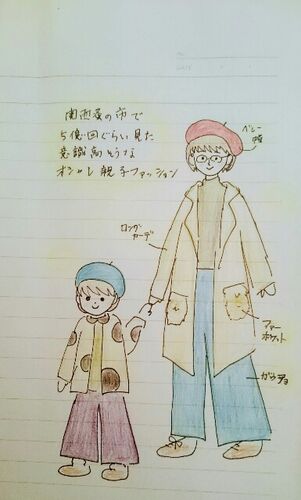 関西蚤の市で
5億回ぐらい見た
意識高そうな
オシャレ親子ファッション
ベレー帽
ロング
カーデ
ファー
ポケット
ガウチョ